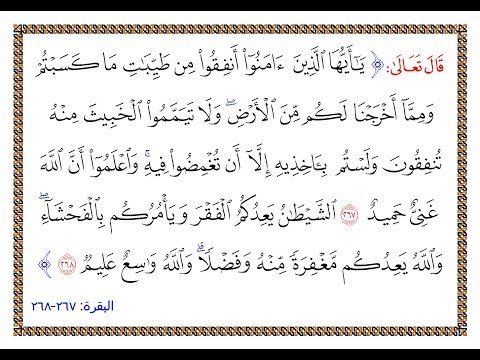 قَالَ تَعَالَى: ﴿ يَـٰٓأَيُّهَا ٱلَّذِينَ ءَامَنُوٓا۟ أَنفِقُوا۟ مِن طَيِّبَـٰتِ مَا كَسَبْتُمْ
وَمِمَّآ أَخْرَجْنَا لَكُم مِّنَ ٱلْأَرْضِ ۖ وَلَا تَيَمَّمُوا۟ ٱلْخَبِيثَ مِنْهُ
تُنفِقُونَ وَلَسْتُم بِـَٔاخِذِيهِ إِلَّآ أَن تُغْمِضُوا۟ فِيهِ ۚ وَٱعْلَمُوٓا۟ أَنَّ ٱللَّهَ
غَنِىٌّ حَمِيدٌ ٢٦٧ ٱلشَّيْطَـٰنُ يَعِدُكُمُ ٱلْفَقْرَ وَيَأْمُرُكُم بِٱلْفَحْشَآءِ ۖ
وَٱللَّهُ يَعِدُكُم مَّغْفِرَةً مِّنْهُ وَفَضْلًا ۗ وَٱللَّهُ وَٰسِعٌ عَلِيمٌ ٢٦٨ ﴾
البقرة: ٢٦٧-٢٦٨